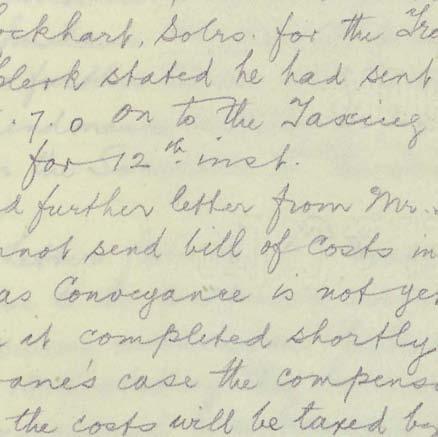 ockhart, Solrs. for the Tro
Clerk stated he had sent
. 7. 0 on to the Taxing
for 12th inst.
d further letter from Mr.
nnot send bill of Costs in
as Conveyance is not ye
it completed shortly
oane's case the compensa
the costs will be taxed by